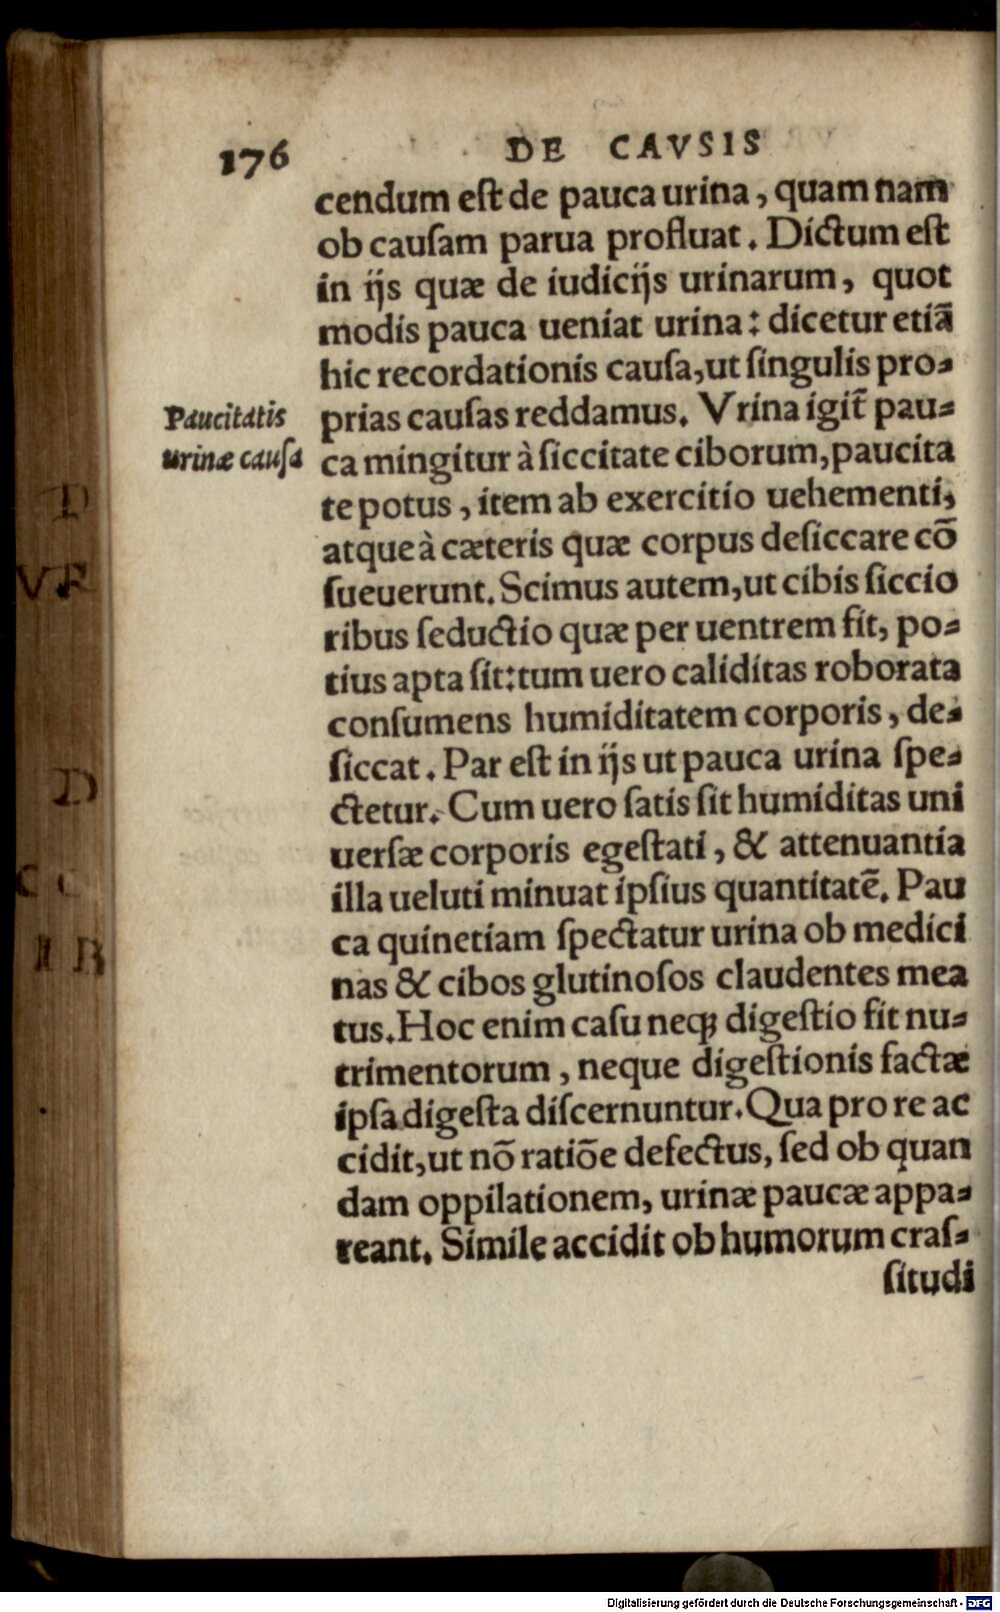 176 DE CAVSIS
cendum eſt de pauca urina, quam nam
ob cauſam parua profluat. Dictum eſt
in ijs quæ de iudicijs urinarum, quot
modis pauca ueniat urina: dicetur etiã
hic recordationis cauſa, ut ſingulis pro-
Paucitatis
urinæ cauſa
prias cauſas reddamus. Vrina igit̃ pau-
ca mingitur à ſiccitate ciborum, paucita
te potus, item ab exercitio uehementi,
atque à cæteris quæ corpus deſiccare cõ
ſueuerunt. Scimus autem, ut cibis ſiccio
ribus ſeductio quæ per uentrem fit, po-
tius apta ſit: tum uero caliditas roborata
conſumens humiditatem corporis, de-
ſiccat. Par eſt in ijs ut pauca urina ſpe-
ctetur. Cum uero ſatis ſit humiditas uni
uerſæ corporis egeſtati, & attenuantia
illa ueluti minuat ipſius quantitatẽ. Pau
ca quinetiam ſpectatur urina ob medici
nas & cibos glutinoſos claudentes mea
tus. Hoc enim caſu neqꝫ digeſtio fit nu-
trimentorum, neque digeſtionis factæ
ipſa digeſta diſcernuntur. Qua pro re ac
cidit, ut nõ ratiõe defectus, ſed ob quan
dam oppilationem, urinæ paucæ appa-
reant. Simile accidit ob humorum craſ-
ſitudi
Digitalisierung gefördert durch die Deutsche Forschungsgemeinschaft - DFG